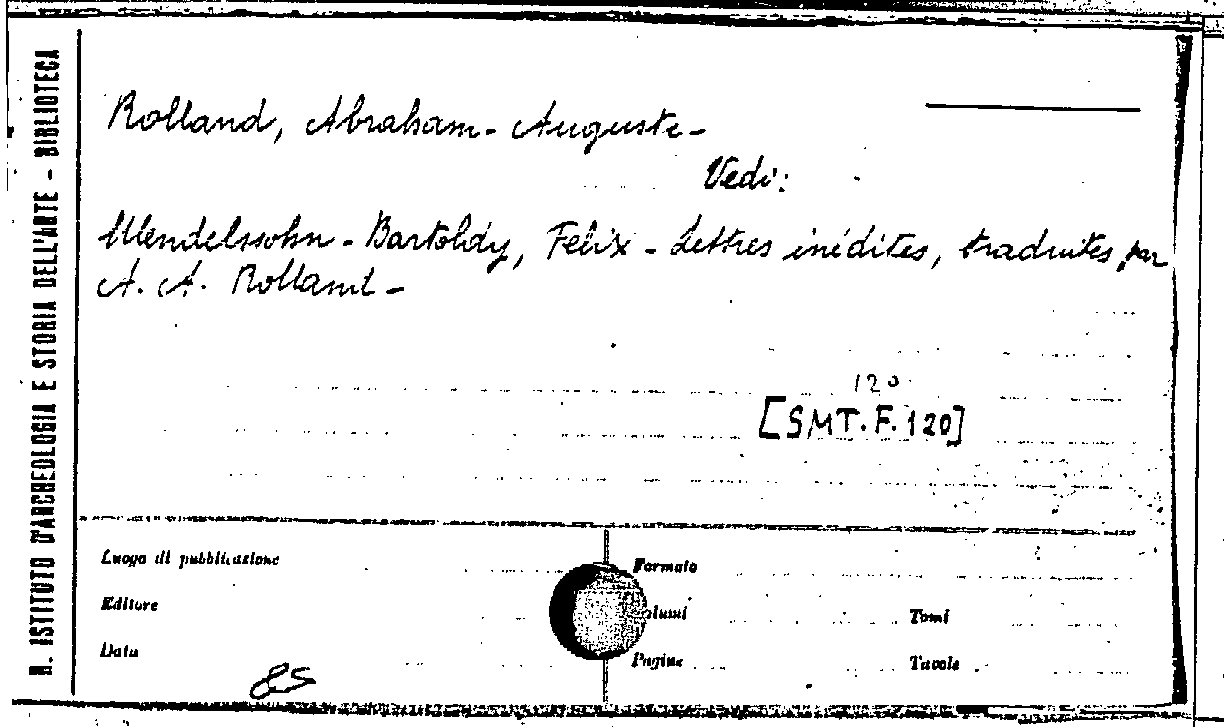 R. ISTITUTO D'ARCHEOLOGIA E STORIA DELL'ARTE - BIBLIOTECA
Rolland, Abraham - Auguste -
Vedi:
Mendelssohn - Bartoldy, Felix - Lettres inédites, traduites par
A. A. Rolland -
120
[SMT. F. 120]
Luogo di pubblicazione
Formato
Editore
Volumi
Tomi
Data
Pagine
Tavole
85